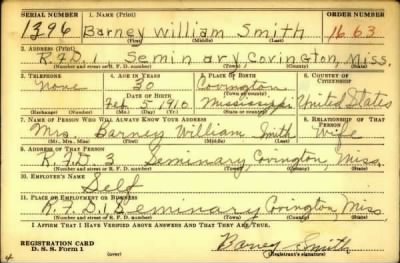 SERIAL NUMBER 1. NAME (Print) ORDER NUMBER
1396 Barney William Smith 1663
(First) (Middle) (Last)
2. ADDRESS (Print)
R.F.D. 1 Seminary Covington, Miss.
(Number and street or R. F. D. number) (Town) (County) (State)
3. TELEPHONE 4. AGE IN YEARS 5. PLACE OF BIRTH 6. COUNTRY OF CITIZENSHIP
None 30 Covington
DATE OF BIRTH (Town or county)
Feb. 5 1910 Mississippi United States
(Exchange) (Number) (Mo.) (Day) (Yr.) (State or country)
7. NAME OF PERSON WHO WILL ALWAYS KNOW YOUR ADDRESS 8. RELATIONSHIP OF THAT PERSON
Mrs. Barney William Smith Wife
(Mr., Mrs., Miss) (First) (Middle) (Last)
9. ADDRESS OF THAT PERSON
R.F.D. 3 Seminary Covington, Miss.
(Number and street or R. F. D. number) (Town) (County) (State)
10. EMPLOYER'S NAME
Self
11. PLACE OF EMPLOYMENT OR BUSINESS
R.F.D. 1 Seminary Covington Miss
(Number and street or R. F. D. number) (Town) (County) (State)
I AFFIRM THAT I HAVE VERIFIED ABOVE ANSWERS AND THAT THEY ARE TRUE.
REGISTRATION CARD
D. S. S. Form 1 (over) Barney Smith
(Registrant's signature)